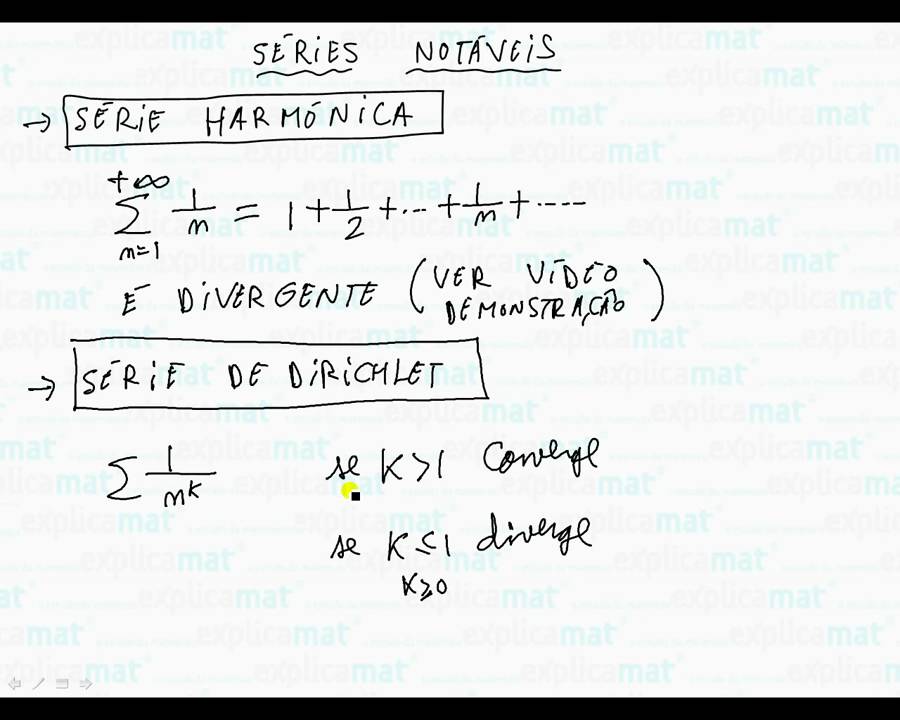 SÉRIES NOTÁVEIS
→ SÉRIE HARMÓNICA
+∞
∑ 1/n = 1 + 1/2 + ... + 1/n + ....
n=1
É DIVERGENTE (VER VIDEO
DEMONSTRAÇÃO)
→ SÉRIE DE DIRICHLET
∑ 1/n^k se K > 1 Converge
se K ≤ 1 diverge
K ≥ 0
explicamat